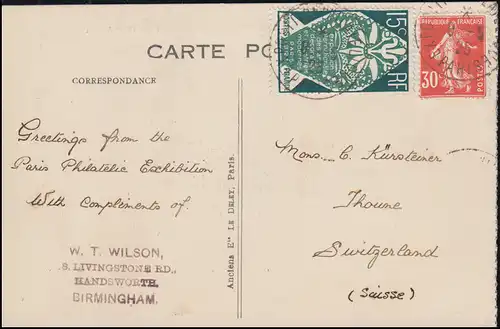 CARTE PO
CORRESPONDANCE
Greetings from the
Paris Philatelic Exhibition
With Compliments of.
W. T. WILSON,
8. LIVINGSTONE RD.,
HANDSWORTH,
BIRMINGHAM.
Anciens Ets LE DELEY, Paris.
15c
RF
REPUBLIQUE FRANÇAISE
30c
POSTES
Mons. C. Kürsteiner
Thoune
Switzerland
(Suisse)